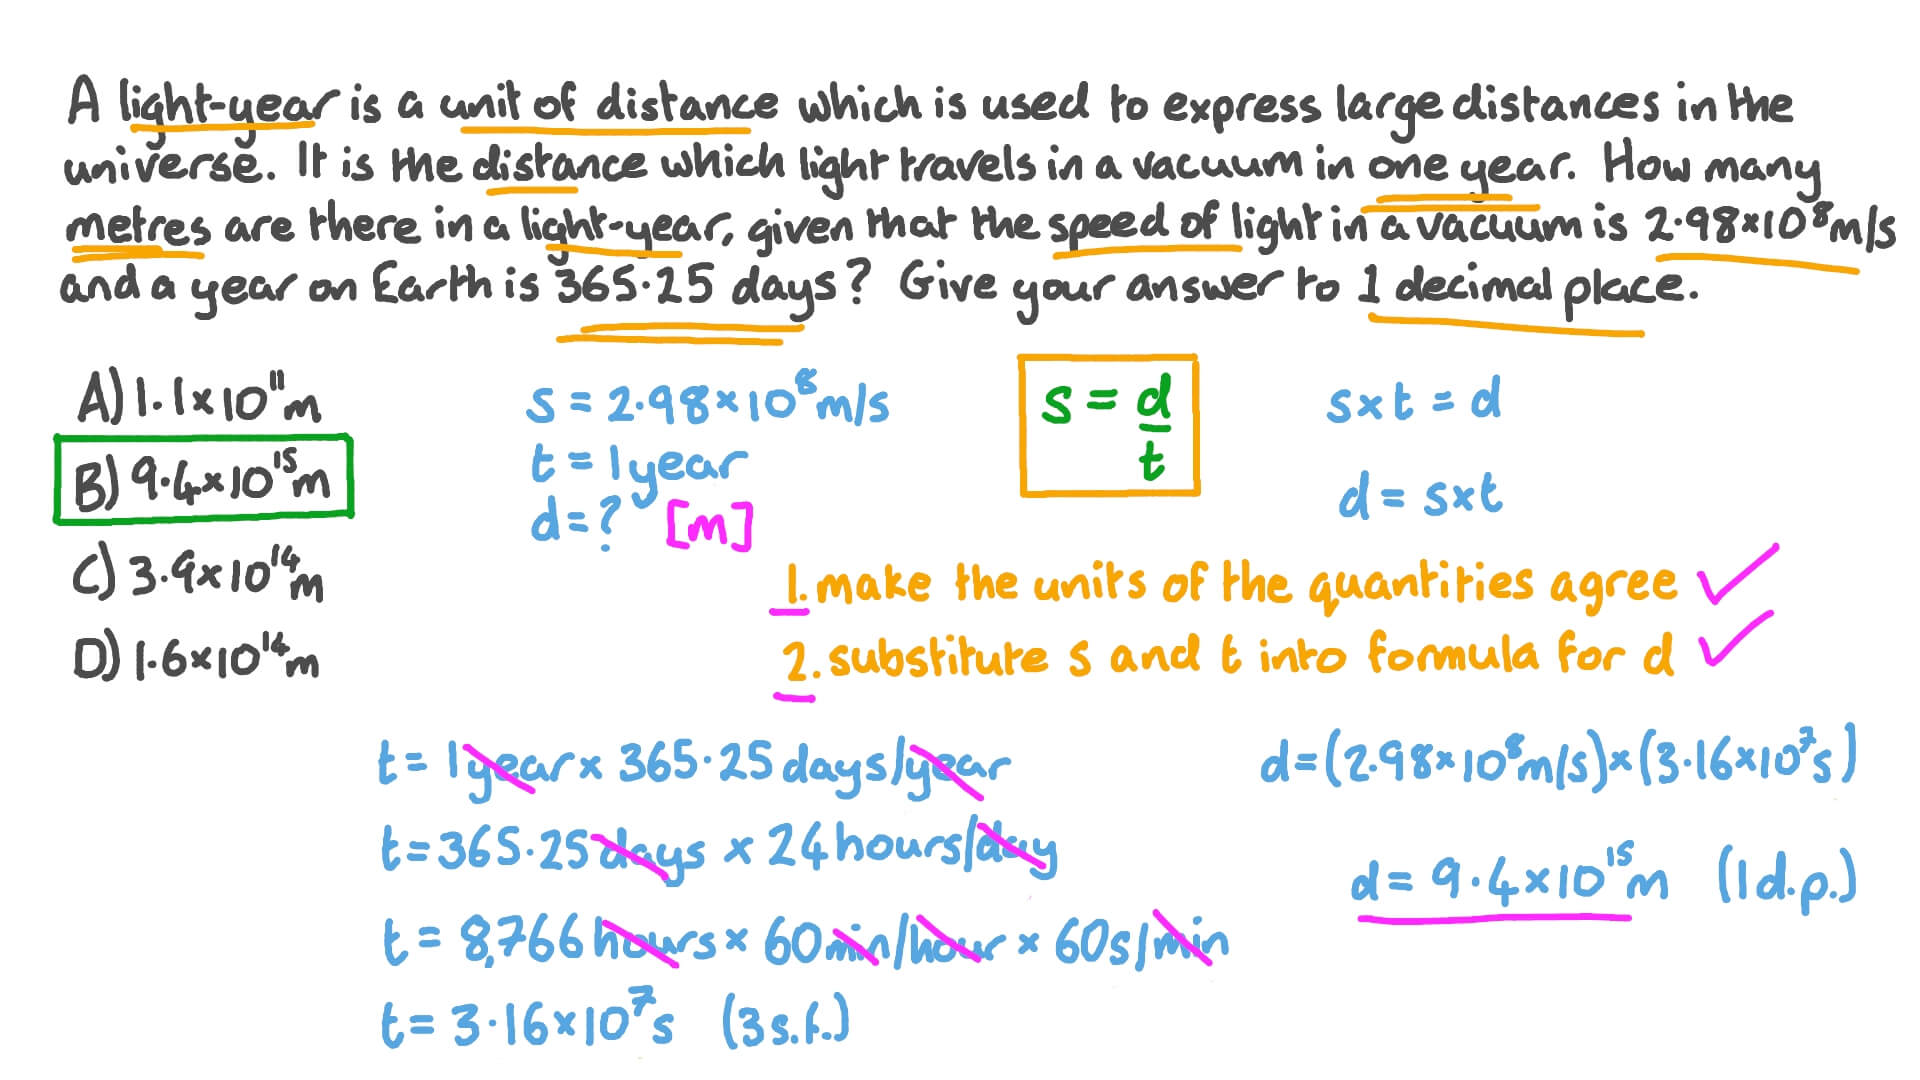 A light-year is a unit of distance which is used to express large distances in the
universe. It is the distance which light travels in a vacuum in one year. How many
metres are there in a light-year, given that the speed of light in a vacuum is 2.98×10⁸m/s
and a year on Earth is 365.25 days? Give your answer to 1 decimal place.
A) 1.1×10¹¹m
B) 9.4×10¹⁵m
C) 3.9×10¹⁴m
D) 1.6×10¹⁴m
s = 2.98×10⁸m/s
t = 1 year
d = ? [m]
s = d/t
s×t = d
d = s×t
1. make the units of the quantities agree ✓
2. substitute s and t into formula for d ✓
t = 1 year × 365.25 days/year
t = 365.25 days × 24 hours/day
t = 8,766 hours × 60 min/hour × 60s/min
t = 3.16×10⁷s (3 s.f.)
d = (2.98×10⁸m/s)×(3.16×10⁷s)
d = 9.4×10¹⁵m (1 d.p.)